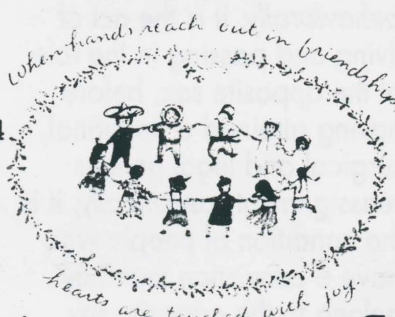 When hands reach out in friendship
hearts are touched with joy.